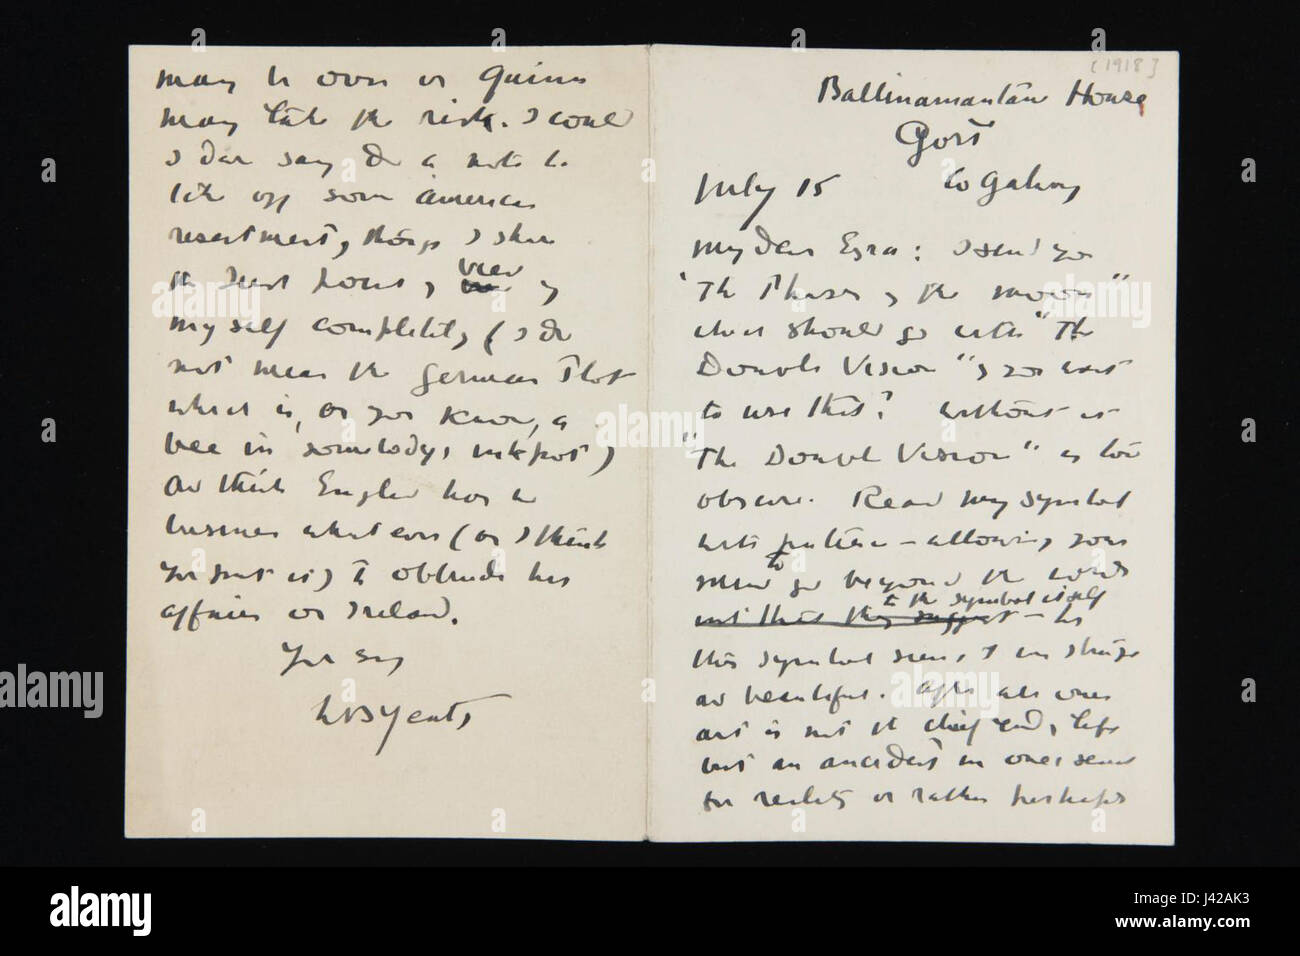 [1918]
Ballinamantane House
Gort
Co Galway
July 15
My dear Ezra: I send you
"The Phases of the Moon"
which should go with "The
Double Vision" if you want
to use that? Without it
"The Double Vision" is too
obscure. Read my symbol
with patience – allowing your
mind to go beyond the words
to the symbol itself
not that they suggest – for
this symbol seems to me strange
and beautiful. After all ones
art is not the chief end of life
but an accident in ones search
for reality or rather perhaps
may be over or Quinn
may take the risk. I could
I dare say do a note to
take off some American
resentment, though I share
the
view of
myself completely (I do
not mean the German Plot
which is, as you know, a
bee in somebodys inkpot)
and think England has no
business whatever (as I think
you put it) to obtrude her
affairs on Ireland.
Yrs ey
WB Yeats
alamy
alamy stock photo
J42AK3
www.alamy.com